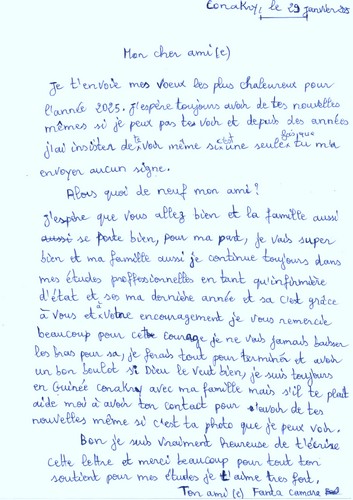 Conakry, le 29 janvier 2025
Mon cher ami(e)
Je t'envoie mes voeux les plus chaleureux pour
l'année 2025. j'espère toujours avoir de tes nouvelles
mêmes si je peux pas te voir et depuis des années
j'ai insister de te voir même si c'est une seule fois que tu m'a
envoyer aucun signe.
Alors quoi de neuf mon ami?
j'espère que vous allez bien et la famille aussi
aussi se porte bien, pour ma part, je vais super
bien et ma famille aussi je continue toujours dans
mes études proffessionnelles en tant qu'infirmière
d'état et ses ma dernière année et sa c'est grâce
à vous et à votre encouragement je vous remercie
beaucoup pour cette courage je ne vais jamais baisser
les bras pour sa, je ferais tout pour terminé et avoir
un bon boulot si Dieu le veut bien, je suis toujours
en Guinée conakry avec ma famille mais s'il te plait
aide moi à avoir ton contact pour avoir de tes
nouvelles même si c'est ta photo que je peux voir.
Bon je suis vraiment heureuse de t'écrire
cette lettre et merci beaucoup pour tout ton
soutient pour mes études je t'aime tres fort.
Ton ami(e) Fanta camara